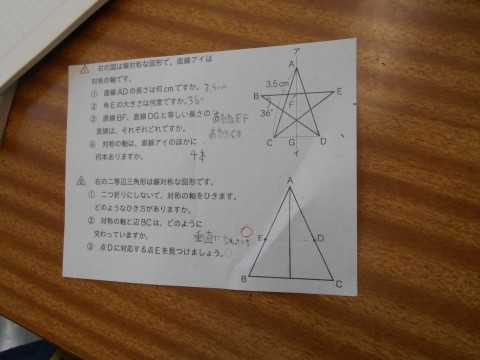 右の図は線対称な図形で、直線アイは
対称の軸です。
① 直線ADの長さは何cmですか。3.5cm
② 角Eの大きさは何度ですか。36°
③ 直線BF、直線DGと等しい長さの 直線EF
直線は、それぞれどれですか。 直線CG
④ 対称の軸は、直線アイのほかに
何本ありますか。 4本
ア
A
3.5cm
B
E
F
36°
C
G
D
イ
右の二等辺三角形は線対称な図形です。
① 二つ折りにしないで、対称の軸をひきます。
どのようなひき方がありますか。
② 対称の軸と辺BCは、どのように
交わっていますか。 垂直に
③ 点Dに対応する点Eを見つけましょう。
A
E
D
B
C